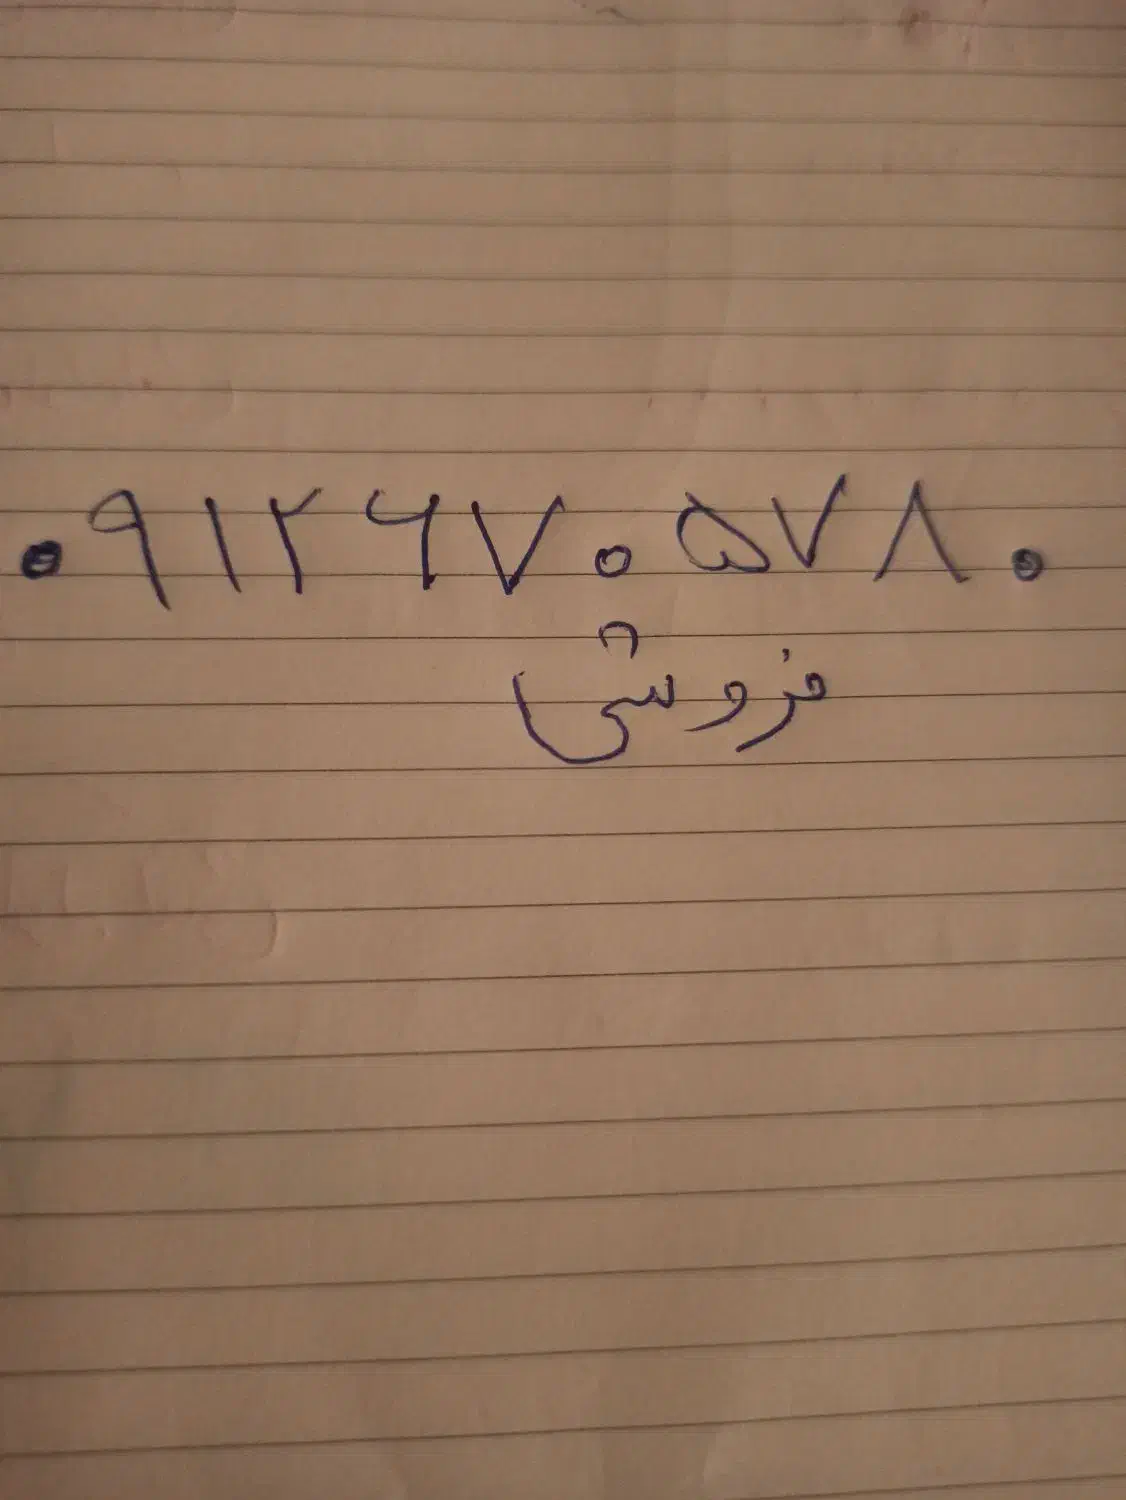 ۰۹۱۲۶۷۰۵۷۸۰
فروشی